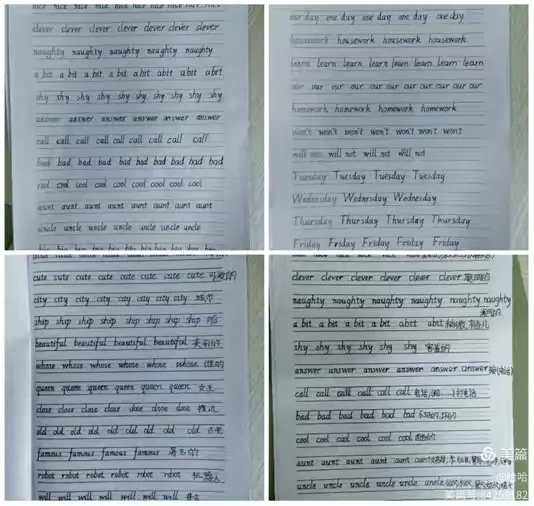 nice nice nice nice nice nice nice nice
clever clever clever clever clever clever clever
naughty naughty naughty naughty naughty
a bit a bit a bit a bit a bit a bit
shy shy shy shy shy shy shy shy shy
answer answer answer answer answer answer
call call call call call call call
bad bad bad bad bad bad bad bad bad
cool cool cool cool cool cool cool cool
aunt aunt aunt aunt aunt aunt aunt
uncle uncle uncle uncle uncle uncle
big big big big big big big big
our day one day one day one day one day
housework housework housework housework
learn learn learn learn learn learn learn
our our our our our our our our our our
homework homework homework homework
won't won't won't won't won't won't
will not will not will not
Tuesday Tuesday Tuesday Tuesday
Wednesday Wednesday Wednesday
Thursday Thursday Thursday Thursday
Friday Friday Friday Friday Friday
cute cute cute cute cute cute cute cute 可爱的
city city city city city city city city 城市
ship ship ship ship ship ship ship 船
beautiful beautiful beautiful beautiful 美丽的
whose whose whose whose whose whose 谁的
queen queen queen queen queen queen 女王
close close close close close close 接近
old old old old old old old old
famous famous famous famous 著名的
robot robot robot robot robot 机器人
will will will will will will
clever clever clever clever clever clever 聪明的
naughty naughty naughty naughty naughty naughty
淘气的
a bit a bit a bit a bit a bit a bit
shy shy shy shy shy shy 害羞的
answer answer answer answer answer answer
call call call call call call
bad bad bad bad bad bad
cool cool cool cool cool cool
aunt aunt aunt aunt aunt aunt
uncle uncle uncle uncle uncle uncle
美篇
美篇号:84250182